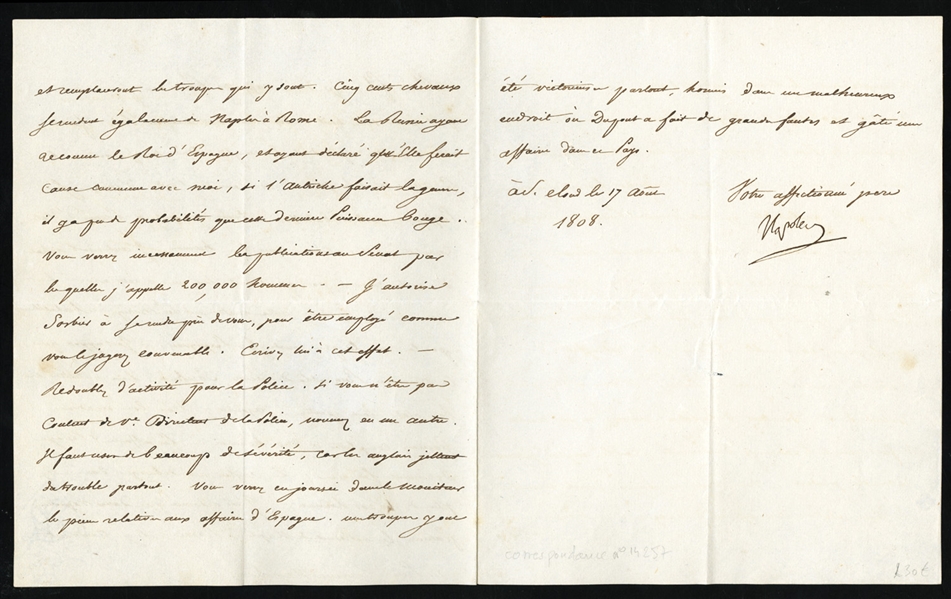 et remplaceront les troupes qui y sont. Cinq cents chevaux
se rendent également de Naples à Rome. La Russie ayant
reconnu le Roi d'Espagne, et ayant déclaré qu'Elle feroit
Cause commune avec moi, si l'Autriche faisait la guerre,
il y a peu de probabilités que cette dernière Puissance bouge.
Vous verrez incessamment les publications au Sénat par
lesquelles j'appelle 200,000 hommes. — J'autorise
Sorbier à se rendre près de vous, pour être employé comme
vous le jugerez convenable. Ecrivez lui à cet effet. —
Redoublez d'activité pour la Police. Si vous n'êtes pas
Content de Vre. Directeur de la Police, nommez en un autre.
Il faut user de beaucoup de sévérité, car les anglais jettent
du trouble partout. Vous verrez ces jours ci dans le Moniteur
les pièces relatives aux affaires d'Espagne. mes troupes y ont
été victorieuses partout, hormis dans un malheureux
endroit où Dupont a fait de grandes fautes et gâté mes
affaires dans ce Pays.
à S. Cloud le 17 Août
1808.
Votre affectionné père
Napoleon
correspondance n° 14257